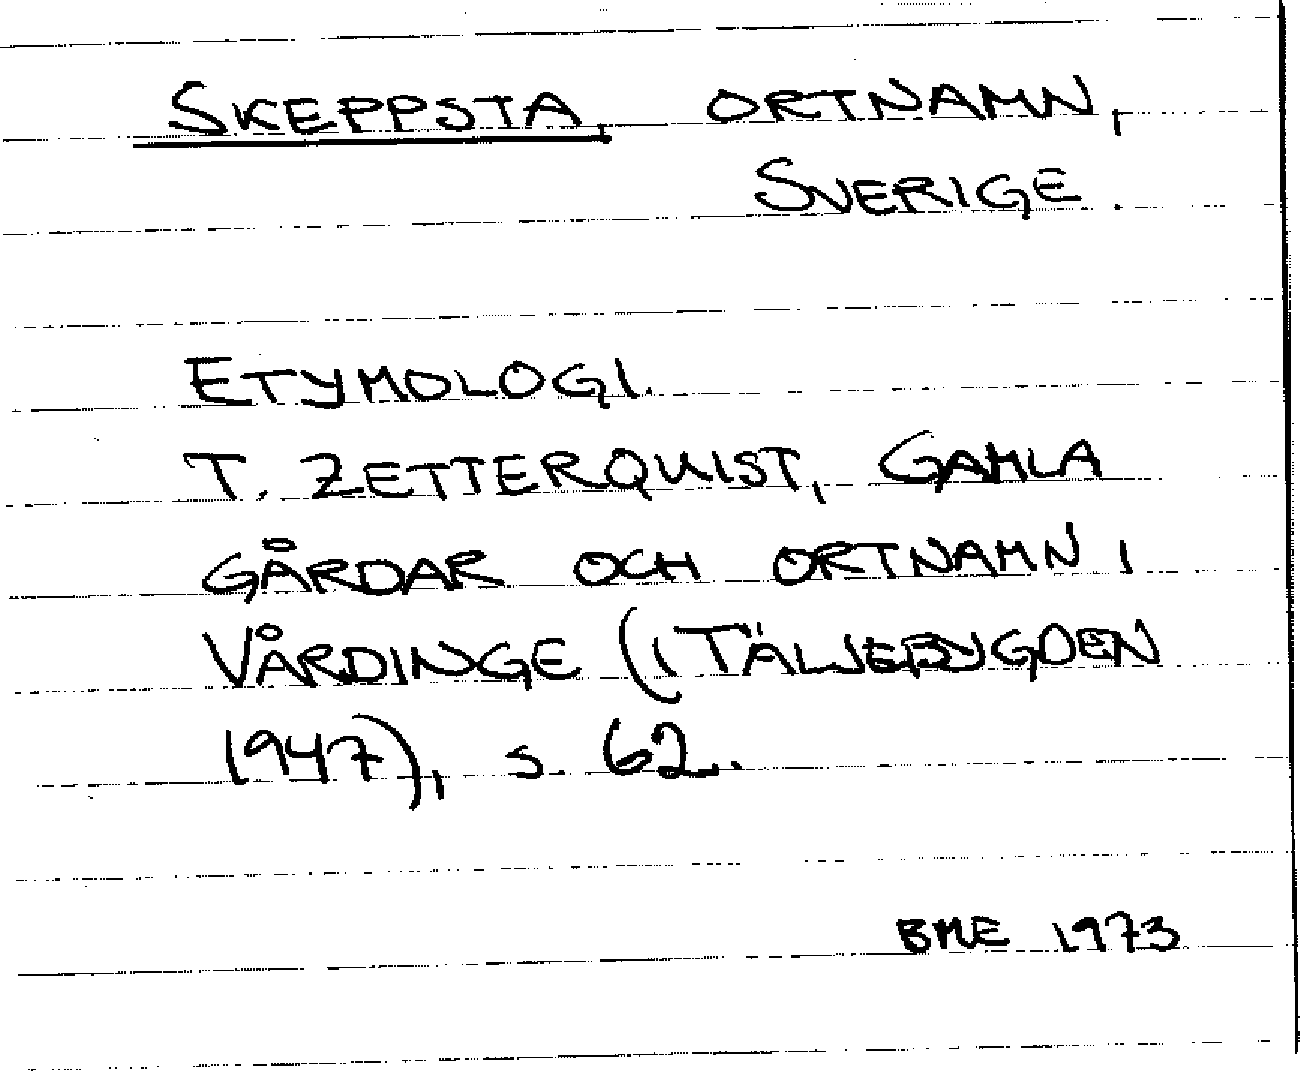 SKEPPSTA, ORTNAMN,
SVERIGE.
ETYMOLOGI.
T. ZETTERQUIST, GAMLA
GÅRDAR OCH ORTNAMN I
VÅRDINGE (I TÄLJEBYGDEN
1947), s. 62.
BME 1973